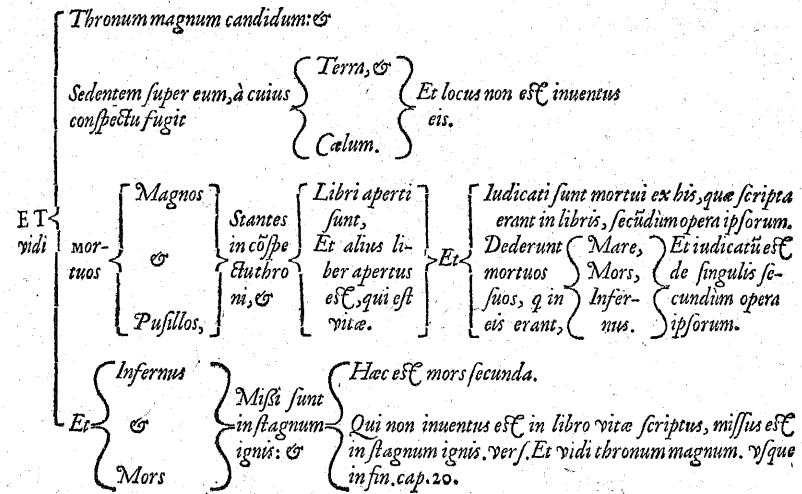 Thronum magnum candidum: &
Sedentem ſuper eum, à cuius
conſpectu fugit
Terra, &
Cælum.
Et locus non eſt inuentus
eis.
ET
vidi
mor-
tuos
Magnos
&
Puſillos,
Stantes
in cōſpe
ctu thro
ni, &
Libri aperti
ſunt,
Et alius li-
ber apertus
eſt, qui eſt
vitæ.
Et
Iudicati ſunt mortui ex his, quæ ſcripta
erant in libris, ſecūdùm opera ipſorum.
Dederunt
mortuos
ſuos, q in
eis erant,
Mare,
Mors,
Infer-
nus.
Et iudicatū eſt
de ſingulis ſe-
cundùm opera
ipſorum.
Et
Infernus
&
Mors
Miſſi ſunt
in ſtagnum
ignis: &
Hæc eſt mors ſecunda.
Qui non inuentus eſt in libro vitæ ſcriptus, miſſus eſt
in ſtagnum ignis. verſ. Et vidi thronum magnum. vſque
in fin. cap. 20.